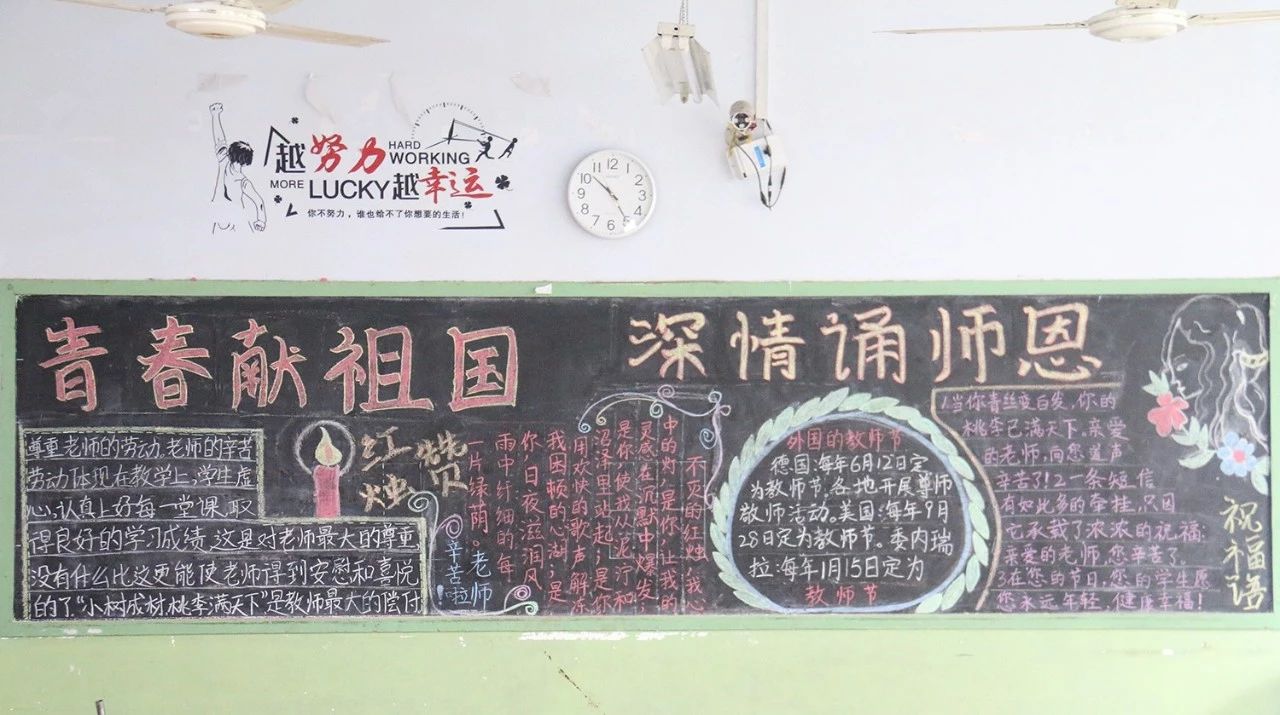 越努力 HARD WORKING
MORE LUCKY 越幸运
你不努力，谁也给不了你想要的生活！
12
1
2
3
4
5
6
7
8
9
10
11
青春献祖国
深情诵师恩
尊重老师的劳动，老师的辛苦
劳动体现在教学上，学生虚
心、认真上好每一堂课、取
得良好的学习成绩，这是对老师最大的尊重，
没有什么比这更能使老师得到安慰和喜悦
的了“小树成材桃李满天下”是教师最大的偿付
红烛赞
不灭的红烛，我心
中的灯，是你，让我的
灵感在沉默中爆发；
是你，使我从泥泞和
沼泽里站起；是你
用欢快的歌声解冻
我困顿的心湖；是
你，日夜滋润风
雨中纤细的每
一片绿荫。
老师
辛苦啦
外国的教师节
德国：每年6月12日定
为教师节，各地开展尊师
敬师活动。美国：每年9月
28日定为教师节。委内瑞
拉：每年1月15日定为
教师节
1.当你青丝变白发，你的
桃李已满天下。亲爱
的老师，向您道声
辛苦了！2一条短信
有如此多的牵挂，只因
它承载了浓浓的祝福：
亲爱的老师，您辛苦了。
3在您的节日，您的学生愿
您永远年轻，健康幸福！
祝福语